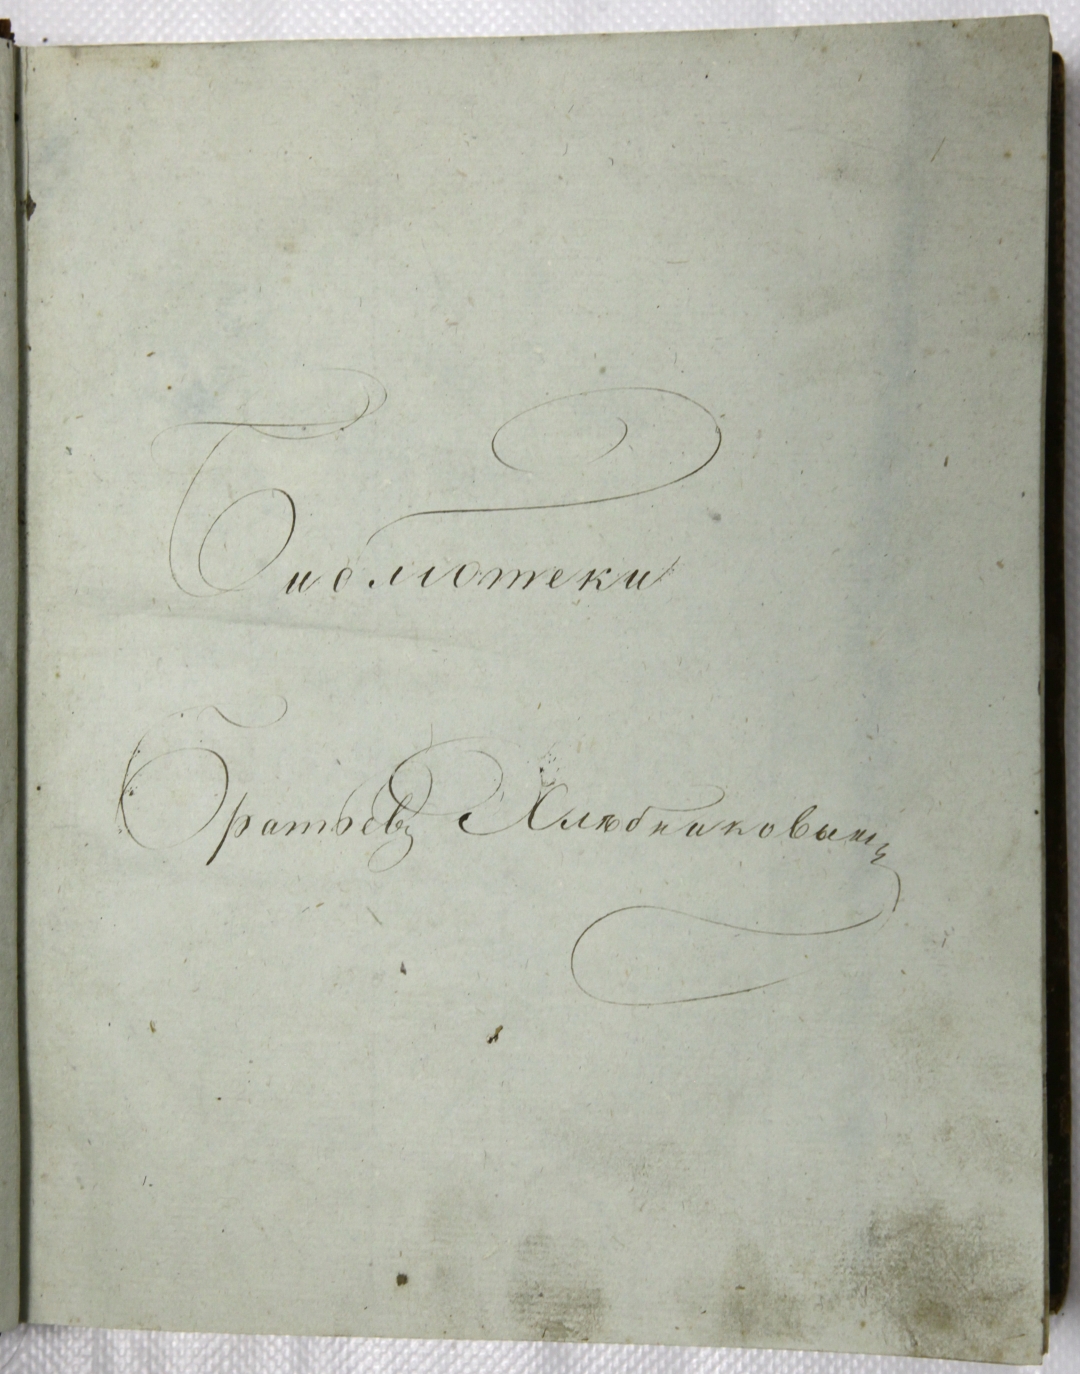 Библиотеки
Братьевъ Хлюбниковыхъ